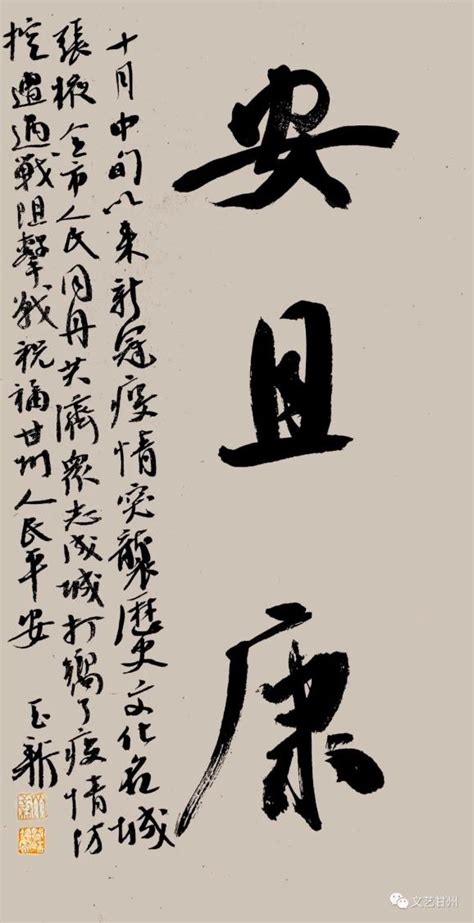 安且康
十月中旬以来新冠疫情突襲歷史文化名城
張掖全市人民同舟共濟衆志成城打響了疫情防
控遭遇戰阻擊戰祝福甘州人民平安 玉新
文艺甘州